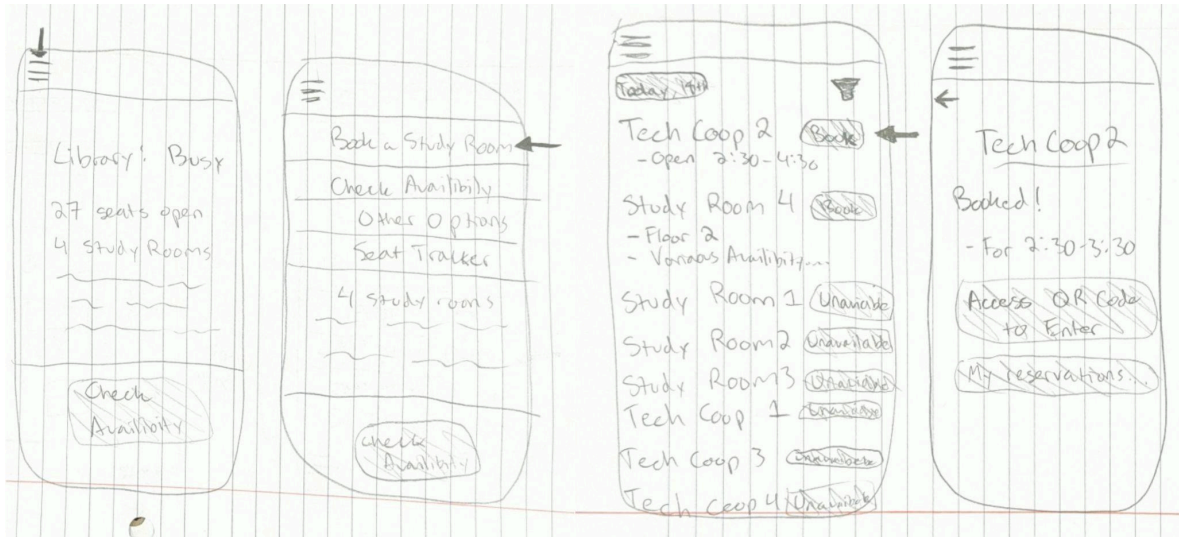 Library! Busy
27 seats open
4 Study Rooms
Check
Availibity
Book a Study Room
Check Availibily
Other Options
Seat Tracker
4 study rooms
Check
Availibity
Today, 18th
Tech Coop 2 Book
- Open 2:30-4:30
Study Room 4 Book
- Floor 2
- Various Availibity....
Study Room 1 Unavaiable
Study Room 2 Unavailable
Study Room 3 Unavaiable
Tech Coop 1
Tech Coop 3
Tech Coop 4
Tech Coop 2
Booked!
- For 2:30-3:30
Access QR Code
to Enter
My reservations...